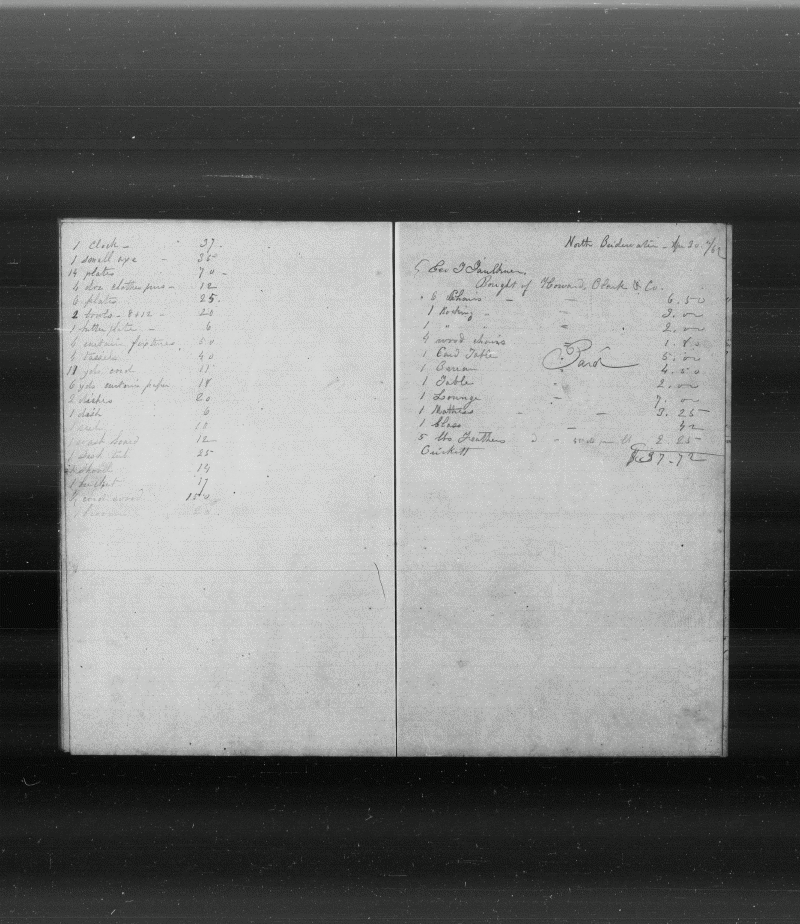 1 clock - 37 -
1 small axe - 35
14 plates - 70 -
4 doz clothes pins - 12
6 plates 25
2 bowls - 8 & 12 - 20
1 butter plate - 6
6 curtain fixtures 50
6 tassels 40
11 yds cord 11
6 yds curtain paper 18
2 dishes 20
1 dish 6
1 13
1 wash board 12
1 tub 25
14
1 bucket 17
wood 150
1
North Bridgewater - Apr 30
Geo T Faulkner
Bought of Howard, Clark & Co.
6 Chairs - 6.50
1 Rocking - 3.00
1 " " 2.00
4 wood chairs 1.80
1 Card Table 5.00
Paid
1 4.50
1 Table 2.00
1 Lounge 7.00
1 Mattress - 3.25
1 Glass - 42
5 lbs Feathers 2.25
Crickett
$37.72